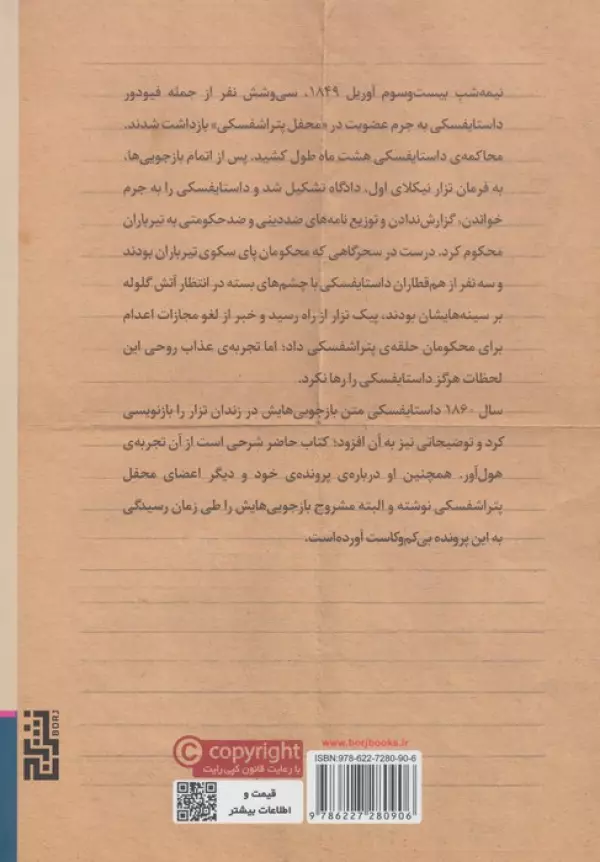 نیمه‌شب بیست‌وسوم آوریل ۱۸۴۹، سی‌وشش نفر از جمله فیودور
داستایفسکی به جرم عضویت در «محفل پتراشفسکی» بازداشت شدند.
محاکمه‌ی داستایفسکی هشت ماه طول کشید. پس از اتمام بازجویی‌ها،
به فرمان تزار نیکلای اول، دادگاه تشکیل شد و داستایفسکی را به جرم
خواندن، گزارش‌ندادن و توزیع نامه‌های ضددینی و ضدحکومتی به تیرباران
محکوم کرد. درست در سحرگاهی که محکومان پای سکوی تیرباران بودند
و سه نفر از هم‌قطاران داستایفسکی با چشم‌های بسته در انتظار آتش گلوله
بر سینه‌هایشان بودند، پیک تزار از راه رسید و خبر از لغو مجازات اعدام
برای محکومان حلقه‌ی پتراشفسکی داد؛ اما تجربه‌ی عذاب روحی این
لحظات هرگز داستایفسکی را رها نکرد.
سال ۱۸۶۰ داستایفسکی متن بازجویی‌هایش در زندان تزار را بازنویسی
کرد و توضیحاتی نیز به آن افزود؛ کتاب حاضر شرحی است از آن تجربه‌ی
هول‌آور. همچنین او درباره‌ی پرونده‌ی خود و دیگر اعضای محفل
پتراشفسکی نوشته و البته مشروح بازجویی‌هایش را طی زمان رسیدگی
به این پرونده بی‌کم‌وکاست آورده‌است.
برج
BORJ
www.borjbooks.ir
ISBN: 978-622-7280-90-6
9 786227 280906
© copyright
با رعایت قانون کپی‌رایت
قیمت و
اطلاعات بیشتر